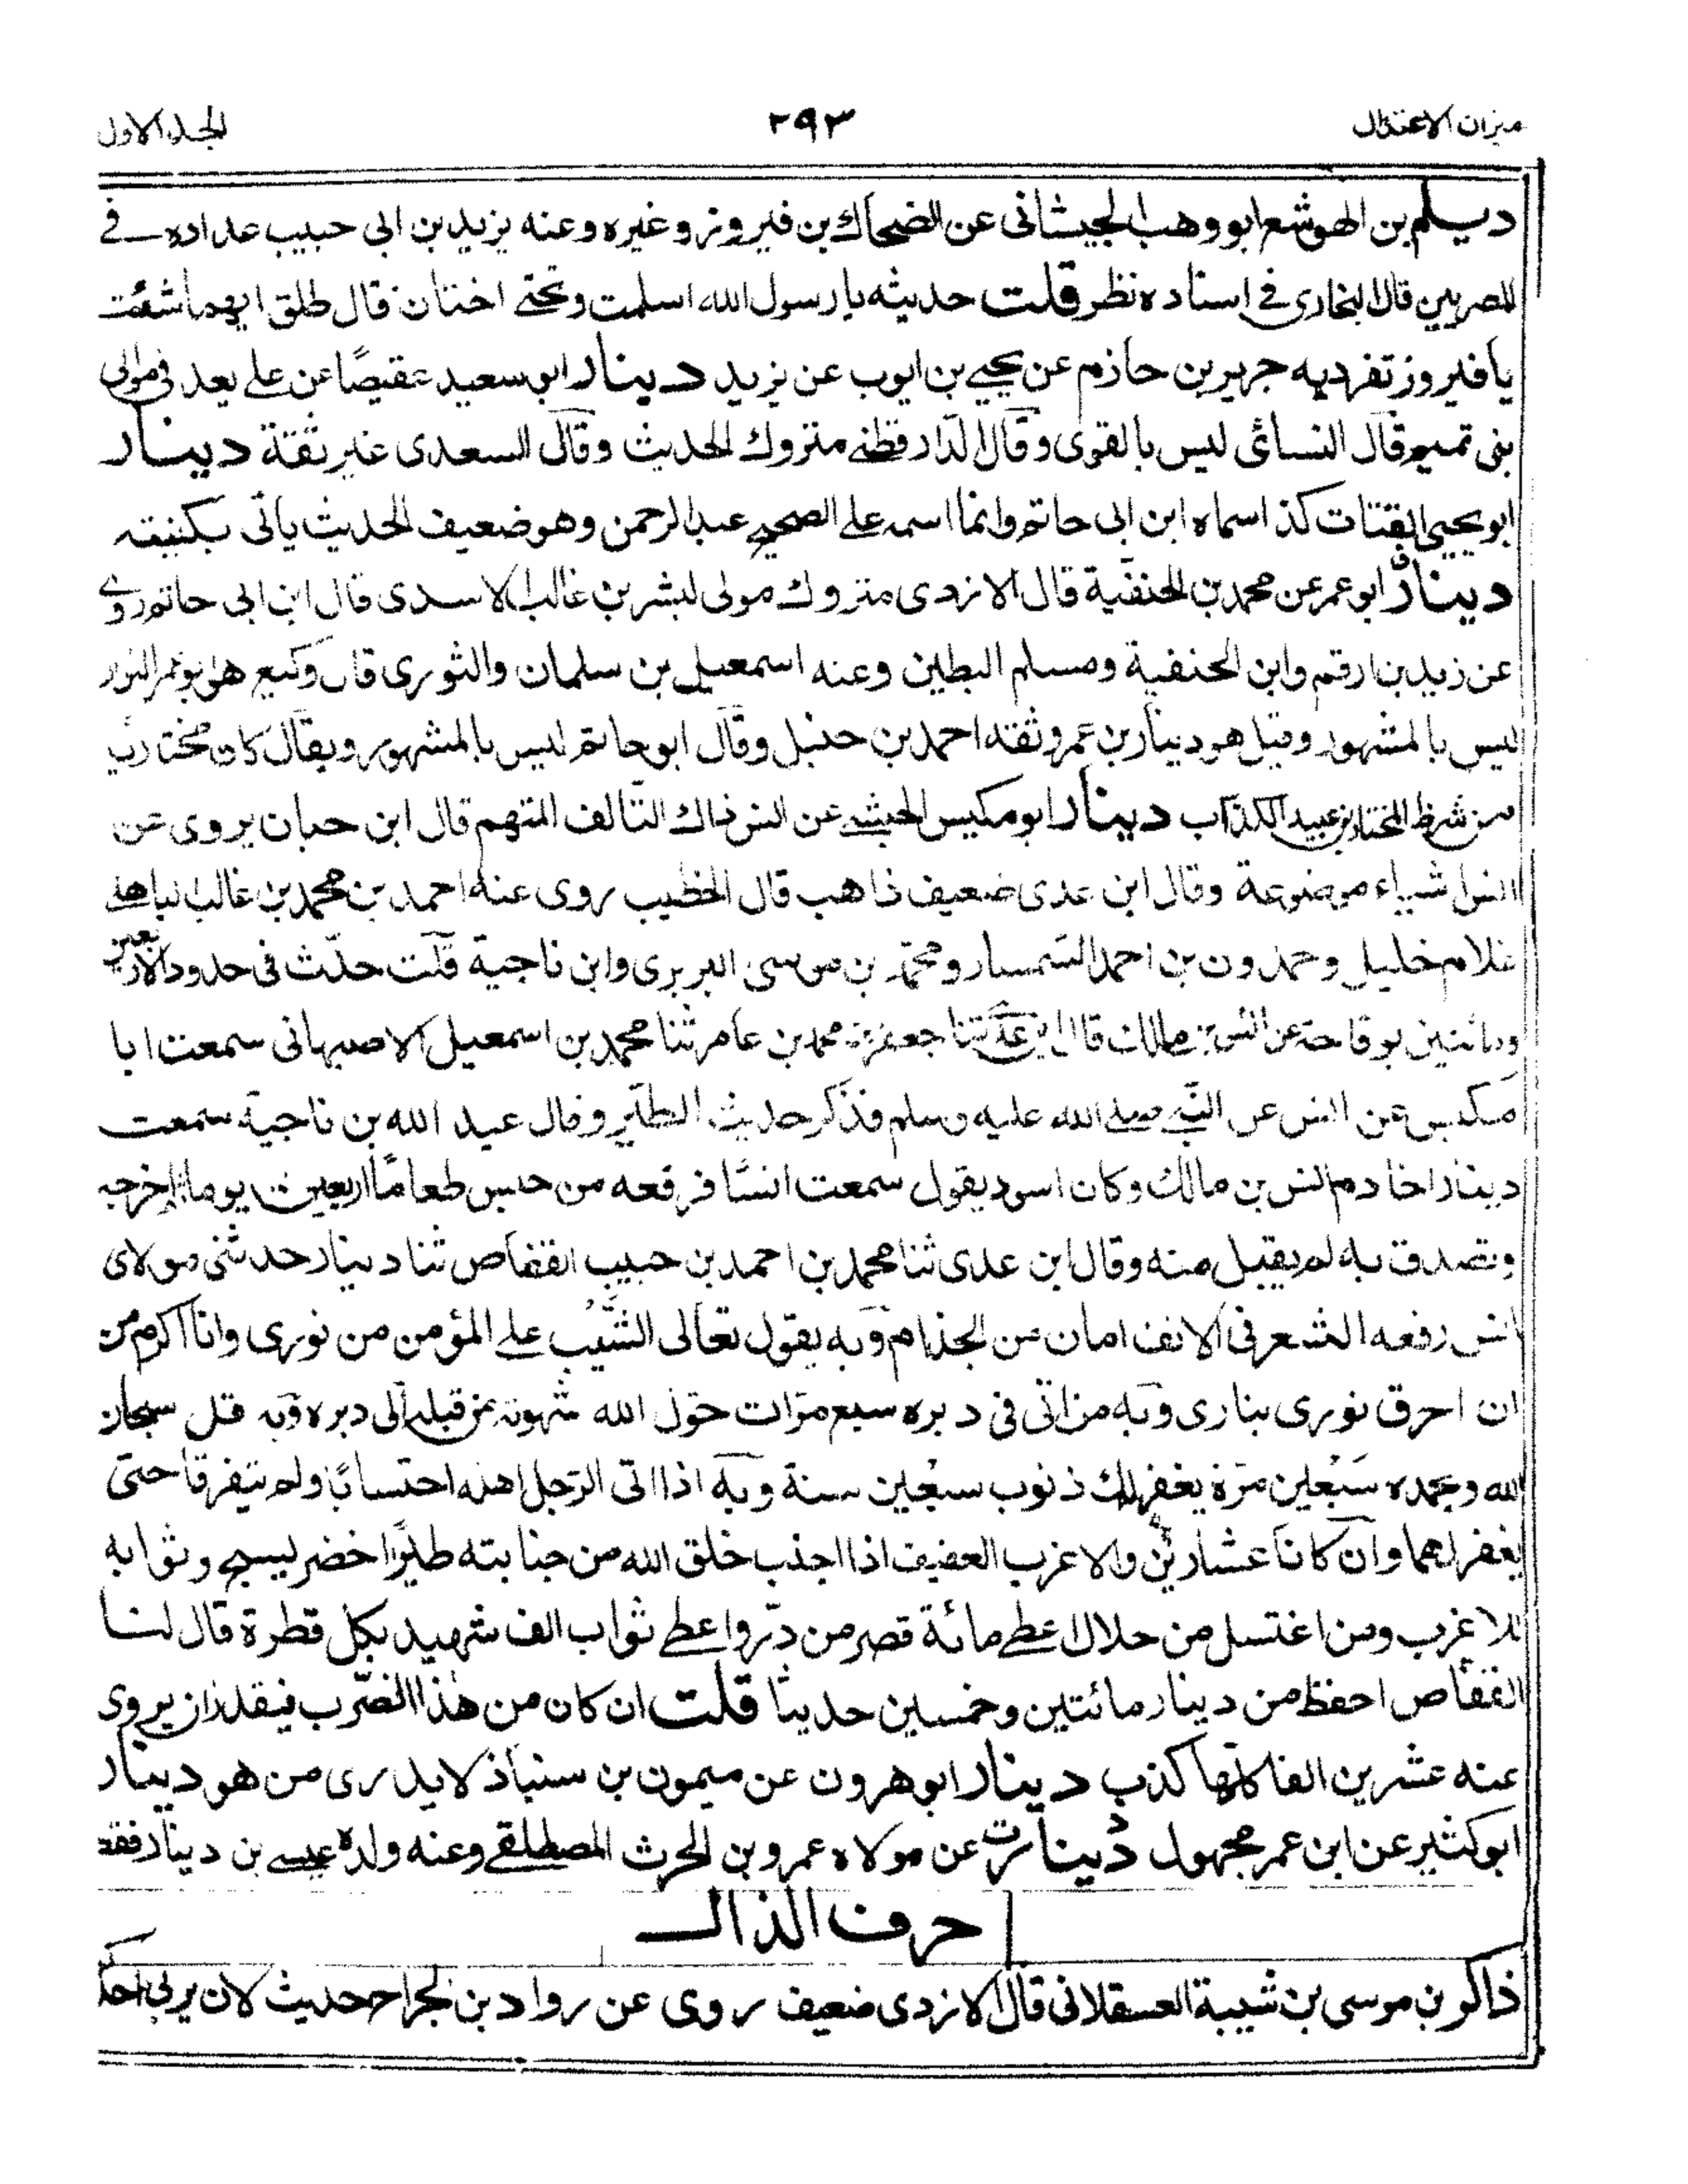 ميزان الاعتدال
٢٩٣
الجلد الاول
ديلم بن الهوشع ابو وهب الجيشانى عن الضحاك بن فيروز وغيره وعنه يزيد بن ابى حبيب عداده فے
المصريين قال البخارى فے اسناده نظر قلت حديثه يا رسول الله اسلمت وتحتے اختان قال طلق ايهما شئت
يا فيروز تفرد به جرير بن حازم عن يحيے بن ايوب عن يزيد دينار ابو سعيد عقيصًا عن علے يعد فى موالى
بنى تميم قال النسائى ليس بالقوى وقال الدارقطنے متروك الحديث وقال السعدى غير ثقة دينار
ابو يحيى القتات كذا سماه ابن ابى حاتم وانما اسمه علے الصحيح عبد الرحمن وهو ضعيف الحديث ياتى بكنيته
دينار ابو عمر عن محمد بن الحنفية قال الازدى متروك مولى لبشر بن غالب الاسدى قال ابن ابى حاتم روے
عن زيد بن ارقم وابن الحنفية ومسلم البطين وعنه اسمعيل بن سلمان والثورى قال وكيع هو ابو عمر البزار
ليس بالمشهور وقيل هو دينار بن عمر وثقه احمد بن حنبل وقال ابو حاتم ليس بالمشهور ويقال كان مختاريا
من شرط المختار بن عبيد الكذاب دينار ابو مكيس الحبشے عن انس ذاك التالف المتهم قال ابن حبان يروى عن
انس اشياء موضوعة وقال ابن عدى ضعيف ذاهب قال الخطيب روى عنه احمد بن محمد بن غالب الباهلے
غلام خليل وحمدون بن احمد السمسار ومحمد بن موسى البربرى وابن ناجية قلت حدّث فى حدود الاربعين
ومائتين بوقاحة عن انس بن مالك قال ابن عدى ثنا جعفر بن محمد بن عامر ثنا محمد بن اسمعيل الاصبهانى سمعت ابا
مكيس عن انس عن النبے صلے الله عليه وسلم فذكر حديث الطير وقال عبد الله بن ناجية سمعت
دينارا خادم انس بن مالك وكان اسود يقول سمعت انسًا فرفعه من حبس طعاما اربعين يوما ثم اخرجه
وتصدق به لم يقبل منه وقال ابن عدى ثنا محمد بن احمد بن حبيب القفاص ثنا دينار حدثنى مولاى
انس رفعه الشعر فى الانف امان من الجذام وبه يقول تعالى الشَّيب علے المؤمن من نورى وانا اكرم من
ان احرق نورى بنارى وبه من اتى فى دبره سبع مرّات حوّل الله شهوته من قبله الى دبره وبه قل سبحان
الله وبحمده سبعين مرّة يغفر لك ذنوب سبعين سنة وبه اذا اتى الرّجل اهله احتسابًا ولم يتفرقا حتى
يغفر لهما وان كانا عشارين والاعزب العفيف اذا اجنب خلق الله من جنابته طيرًا اخضر يسبح وثوابه
للاعزب ومن اغتسل من حلال اعطے مائة قصر من درّ واعطے ثواب الف شهيد بكل قطرة قال لنا
القفاص احفظ من دينار مائتين وخمسين حديثا قلت ان كان من هذا الضّرب فيقدر ان يروى
عنه عشرين الفا كلها كذب دينار ابو هرون عن ميمون بن سنباذ لا يدرى من هو دينار
ابو كثير عن ابن عمر مجهول دينار ت عن مولاه عمرو بن الحرث المصطلقے وعنه ولده عيسے بن دينار فقط
حرف الذال
ذاكر بن موسى بن شيبة العسقلانى قال الازدى ضعيف روى عن رواد بن الجراح حديث لان يربى احدكم